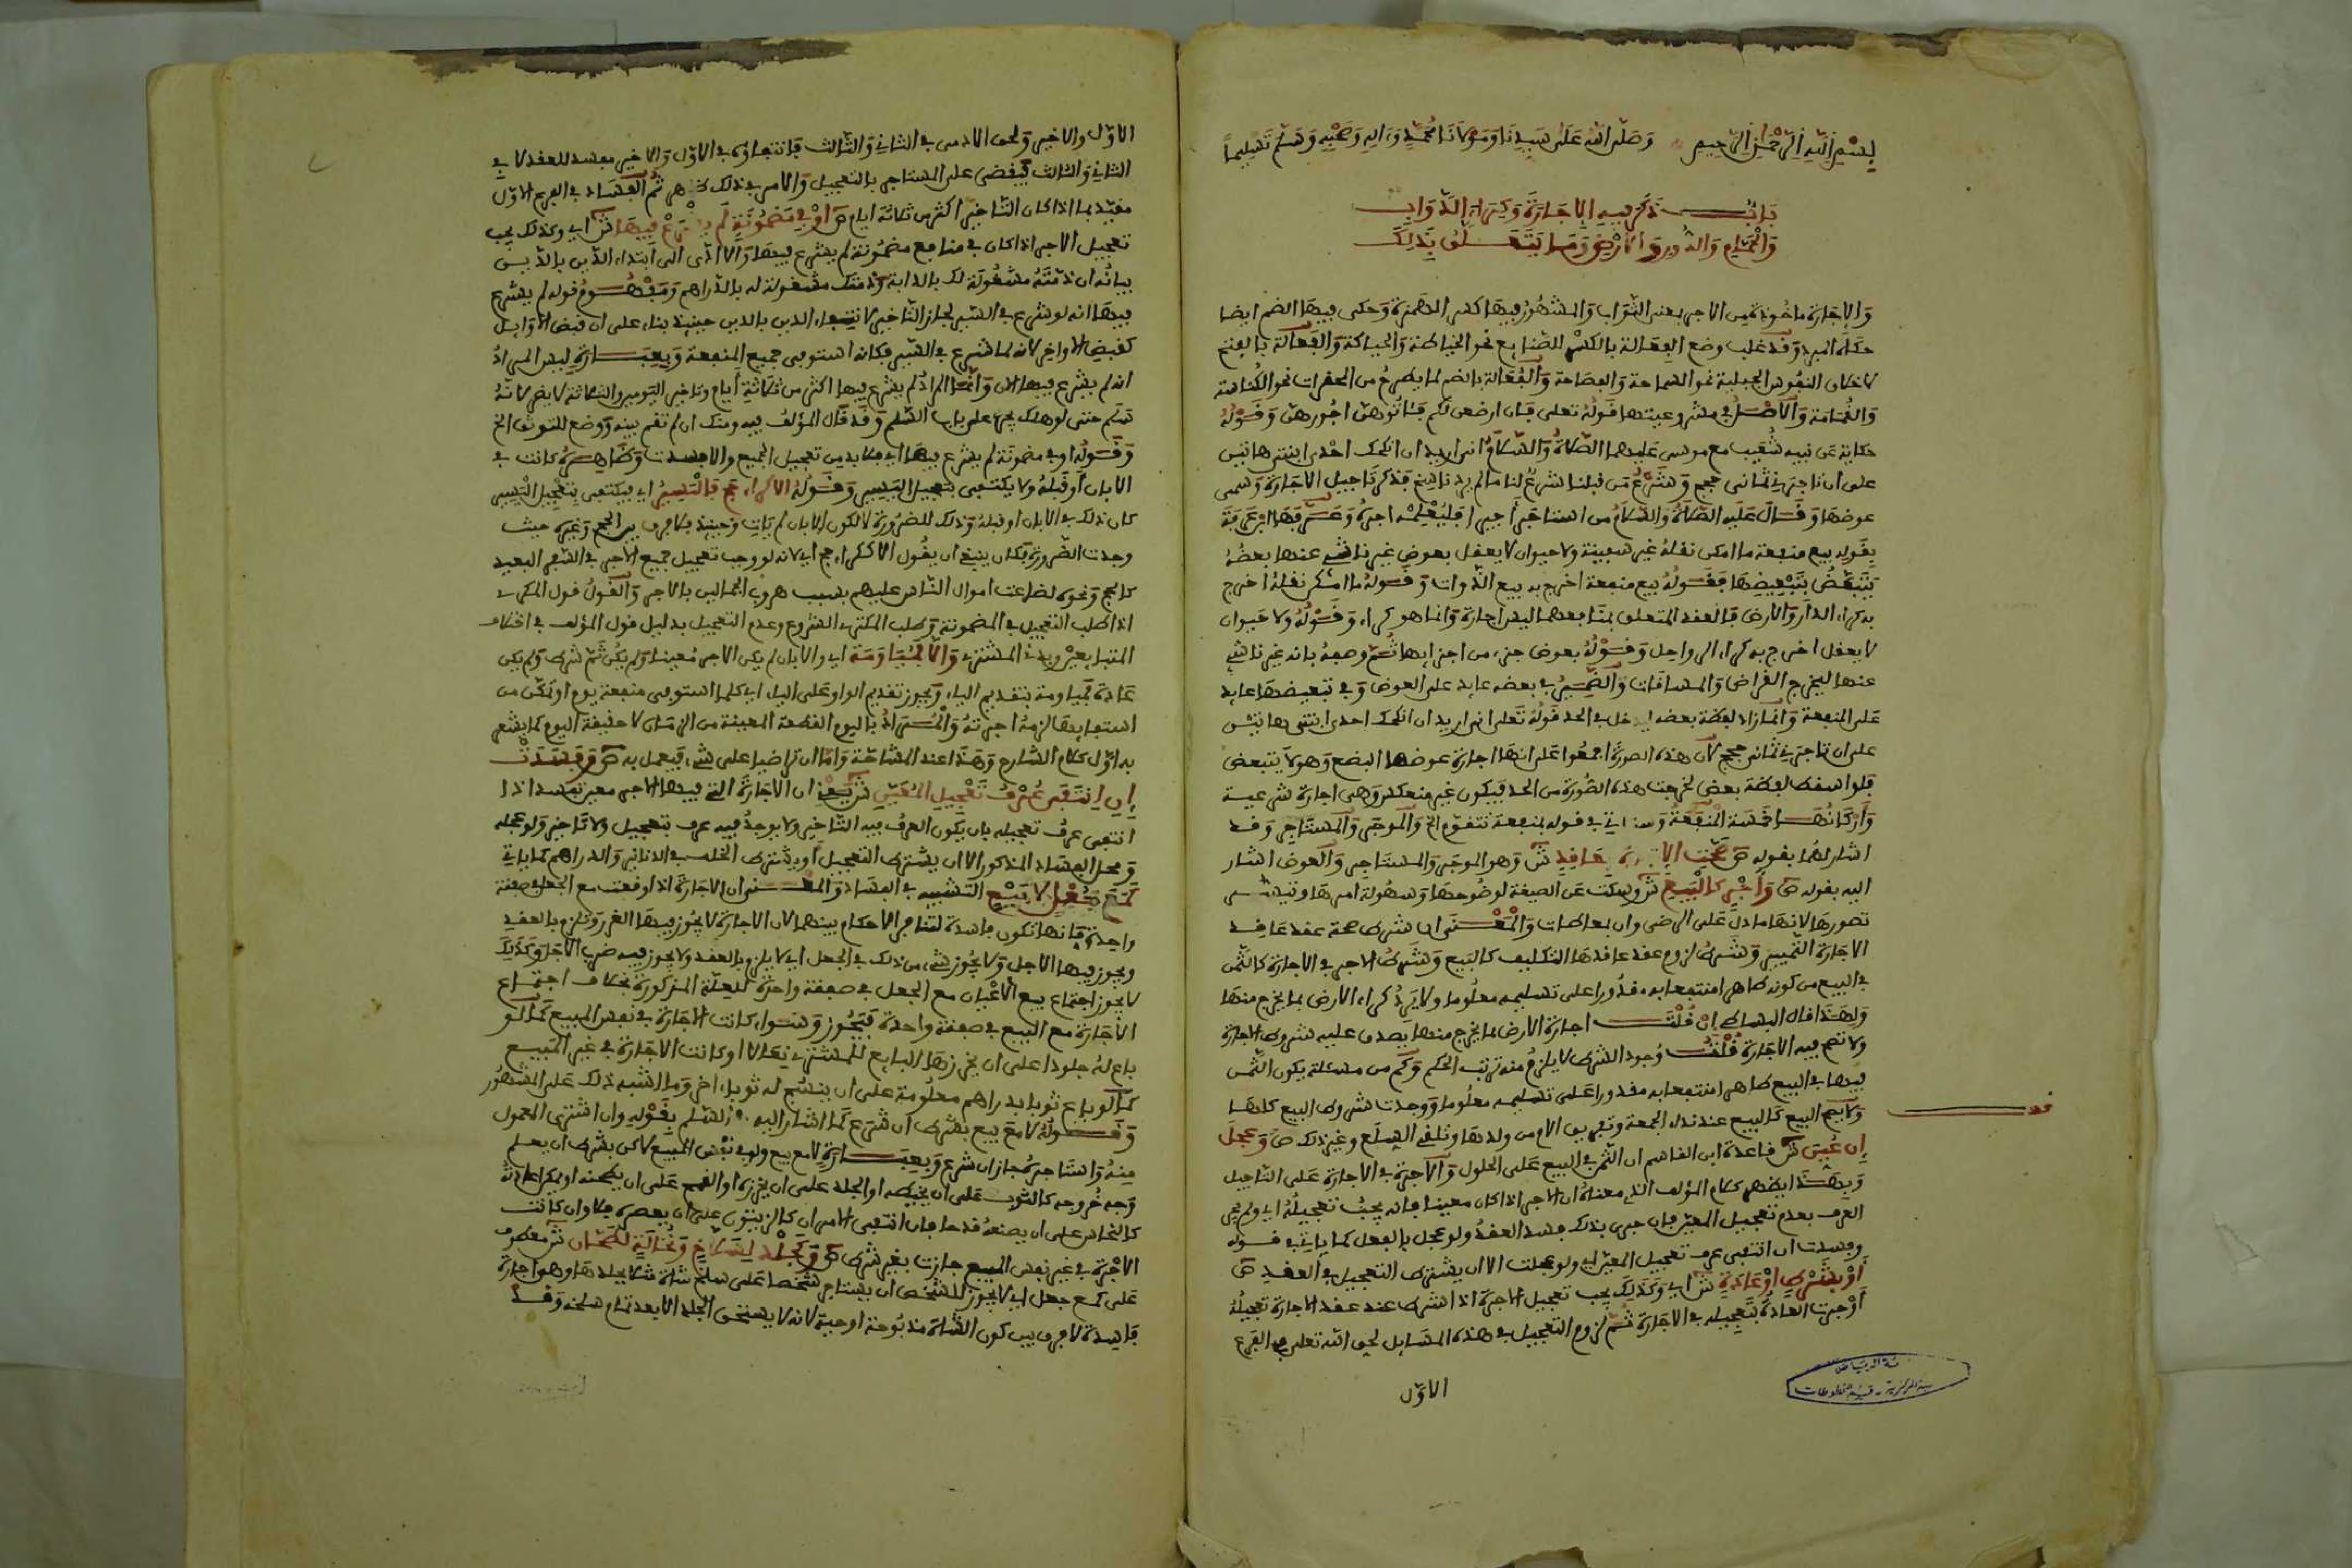 بسم الله الرحمن الرحيم وصلى الله على سيدنا ومولانا محمد وءاله وصحبه وسلم تسليما
باب ذكر فيه الاجارة وكراء الدواب
والحمام والدور والارض وما يتعلق بذلك
والاجارة ماخوذة من الاجر بمعنى الثواب والمشهور فيها كسر الهمزة وحكى فيها الضم ايضا
حكاه المبرد وقد غلب وضع الفعالة بالكسر للصنايع نحو الخياطة والحياكة والفعالة بالفتح
لاخلاق النفوس الجبلية نحو السماحة والفصاحة والفعالة بالضم لما يطرح من المحقرات نحو الكناسة
والقمامة والاصل في مشروعيتها قوله تعلى فان ارضعن لكم فئاتوهن اجورهن وقوله
حكاية عن نبيه شعيب مع موسى عليهما الصلاة والسلام انى اريد ان انكحك احدى ابنتى هاتين
على ان تاجرني ثمانى حجج وشرع من قبلنا شرع لنا ما لم يرد ناسخ فذكر تاجيل الاجارة وسمى
عوضها وقال عليه الصلاة والسلام من استاجر اجيرا فليعلمه اجره وعرفها ابن عرفة
بقوله بيع منفعة ما امكن نقله غير سفينة ولا حيوان لا يعقل بعوض غير ناشئ عنها بعضه
يتبعض بتبعيضها فقوله بيع منفعة اخرج به بيع الذوات وقوله ما امكن نقله اخرج
به كراء الدار والارض فالعقد المتعلق بمنافعهما ليس اجارة وانما هو كراء وقوله ولا حيوان
لا يعقل اخرج به كراء الرواحل وقوله بعوض جزء من اجزايها ثم وصفه بانه غير ناشئ
عنها ليخرج القراض والمساقات والضمير في بعضه عايد على العوض وفي تبعيضها عايد
على المنفعة وانما زاد لفظة بعضه ليدخل في الحد قوله تعلى انى اريد ان انكحك احدى ابنتى هاتين
على ان تاجرني ثمانى حجج لان هذه الصورة اجمعوا على انها اجارة عوضها البضع وهو لا يتبعض
فلو اسقط لفظة بعض لخرجت هذه الصورة من الحد فيكون غير منعكس وهى اجارة شرعية
واركانها خمسة المنفعة وستاتي في قوله بمنفعة تتقوم الخ والموجر والمستاجر وقد
اشار لهما بقوله ص صحة الاجارة بعاقد ش وهو الموجر والمستاجر والعوض اشار
اليه بقوله ص واجر كالبيع ش وسكت عن الصيغة لوضوحها وسهولة امرها
تصورها لانها ما دل على الرضى وان بمعاطات والمعنى ان شرط صحة عقد عاقد
الاجارة التمييز وشرط لزوم عقد عاقدها التكليف كالبيع وشرط الاجر في الاجارة كالثمن
في البيع من كونه طاهرا منتفعا به مقدورا على تسليمه معلوما ولا يرد كراء الارض بما يخرج منها
ولهذا قال البساطي ان قلت اجارة الارض بما يخرج منها يصدق عليه شروط الاجارة
ولا تصح فيه الاجارة قلت وجود الشرط لا يلزم منه ترتب الحكم وكم من مسئلة يكون الثمن
فيها في البيع طاهرا منتفعا به مقدورا على تسليمه معلوما ووجدت شروط البيع كلها
ولا يصح البيع كالبيع عند نداء الجمعة وتفريق الام من ولدها وتلقى السلع وغير ذلك ص وعجل
ان عين ش قاعدة ابن القاسم ان الثمن في البيع على الحلول والاجرة في الاجارة على التاجيل
وبهذا يظهر كلام المؤلف الذي معناه ان الاجر اذا كان معينا فانه يجب تعجيله اي ولم يجر
العرف بعدم تعجيل المعين فان جرى بذلك فسد العقد ولو عجل بالفعل كما ياتي في قوله
وفسدت ان انتفى عرف تعجيل المعين اي ولو عجلت الا ان يشترط التعجيل في العقد ص
او بشرط او عادة ش اي وكذلك يجب تعجيل الاجرة اذا اشترط عند عقد الاجارة تعجيله
او جرت العادة بتعجيله في الاجارة ثم لزوم التعجيل في هذه المسايل لحق الله تعلى في الفرع
الاول
الاول والاخير ولحق الادمى في الثاني والثالث فانتفاؤه في الاول والاخير مفسد للعقد لا في
الثاني والثالث فيقضى على المستاجر بالتعجيل والامر في ذلك ظاهر ثم الفساد في الفرع الاول
مقيد بما اذا كان التاخير اكثر من ثلاثة ايام ص او في مضمونة لم يشرع فيها ش اي وكذلك يجب
تعجيل الاجر اذا كان في منافع مضمونة لم يشرع فيها والا ادى الى ابتداء الدين بالدين
بيانه ان ذمته مشغولة لك بالدابة وذمتك مشغولة له بالدراهم ومفهوم قوله لم يشرع
فيها انه لو شرع في السير لجاز التاخير لانتفاء الدين بالدين حينيذ بناء على ان قبض الاوايل
كقبض الاواخر لانه لما شرع في السير فكانه استوفى جميع المنفعة وبعبارة ليس المراد
انه لم يشرع فيها الان وانما المراد لم يشرع فيها اكثر من ثلاثة ايام وتاخير اليومين والثلاثة لا يضر لانه
سلم حتى لو هلك يجرى على باب السلم وقد قال المؤلف فيه ومنك ان لم تقم بينة ووضع للتوثق الخ
وقوله او في مضمونة لم يشرع فيها اي فلابد من تعجيل الجميع والا فسدت وظاهره كانت في
الابان او قبله ولا يكتفى بتعجيل اليسير وقوله الا كراء حج فاليسير اي فيكتفى بتعجيل اليسير
كان ذلك في الابان او قبله وذلك للضرورة لا لكون الابان لم يات وحينيذ فلا فرق بين الحج وغيره حيث
وجدت الضرورة فكان ينبغي ان يقول الا ككراء حج اي لانه لو وجب تعجيل جميع الاجر في السفر البعيد
كالحج ونحوه لضاعت اموال الناس عليهم بسبب هروب الجمالين بالاجر والقول قول المكرى
اذا طلب التعجيل في المضمونة وطلب المكترى الشروع وعدم التعجيل بدليل قول المؤلف في اختلاف
المتبايعين وبدئ المشتري والا فمياومة اي والا بان لم يكن الاجر معينا ولم يكن ثم شرط ولم يكن
عادة فمياومة بتقديم الياء ويجوز تقديم الواو على الياء اي كلما استوفى منفعة يوم او تمكن من
استيفايها لزمه اجرته والمراد باليوم القطعة المعينة من الزمان لا حقيقة اليوم كما يشعر
به اول كلام الشارح وهذا عند المشاحة واما ان تراضيا على شيء فيعمل به ص وفسدت
ان انتفى عرف تعجيل المعين ش يعني ان الاجارة التي فيها الاجر معين تفسد اذا
انتفى عرف تعجيله بان يكون العرف فيه التاخير ولا يوجد فيه عرف بتعجيل ولا تاخير ولو عجله
ومحل الفساد المذكور الا ان يشترط التعجيل او يشترط الخلف في الدنانير والدراهم كما ياتي
كمع جعل لا بيع التشبيه في الفساد والمعنى ان الاجارة اذا وقعت مع الجعل في صفقة
واحدة فانها تكون فاسدة لتنافر الاحكام بينهما لان الاجارة لا يجوز فيها الغرر وتلزم بالعقد
ويجوز فيها الاجل ولا يجوز شيء من ذلك في الجعل اي لا يلزم بالعقد ولا يجوز فيه ضرب الاجل وكذلك
لا يجوز اجتماع بيع الاعيان مع الجعل في صفقة واحدة للعلة المذكورة بخلاف اجتماع
الاجارة مع البيع في صفقة واحدة فيجوز وسواء كانت الاجارة في نفس المبيع كما لو
باع له جلودا على ان يخرزها البايع للمشتري نعالا او كانت الاجارة في غير المبيع
كما لو باع ثوبا بدراهم معلومة على ان ينسج له ثوبا اخر وما اشبه ذلك على المشهور
وقوله لا مع بيع بشرط ان شرع كما اشار اليه السلم بقوله وان اشترى المعمول
منه واستاجره جاز ان شرع وبعبارة لا مع بيع ولو في نفس المبيع لاكن بشرط ان يعلم
وجه خروجه كالثوب على ان يخيطه او الجلد على ان يخرزه او القمح على ان يطحنه او يمكن اعادته
كالنحاس على ان يصنعه قدحا فان انتفى الامران كالزيتون على ان يعصره فلا وان كانت
الاجرة في غير نفس المبيع جازت بغير شرط ص وكجلد لسلاخ ونخالة لطحان ش معطوف
على كمع جعل اي لا يجوز للشخص ان يستاجر شخصا على سلخ شاة مثلا بجلدها وهو اجارة
فاسدة لا فرق بين كون الشاة مذبوحة او حية لانه لا يستحق الجلد الا بعد تمام سلخه وقد